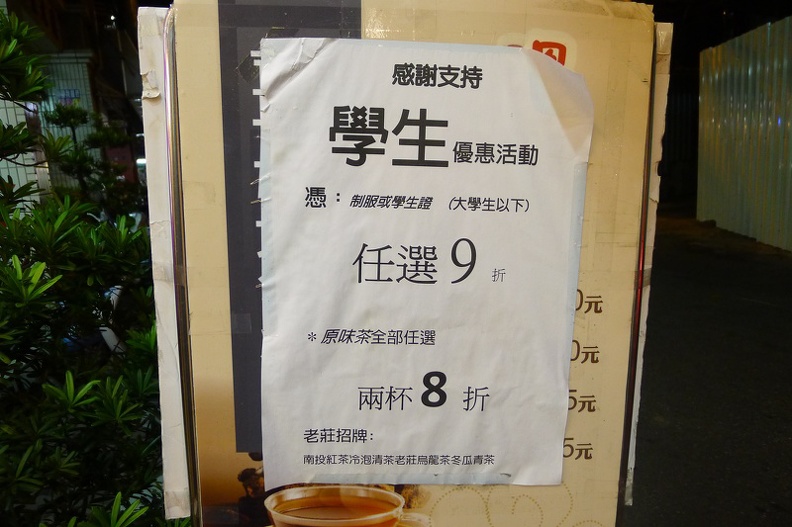 感謝支持
學生優惠活動
憑：制服或學生證 （大學生以下）
任選9折
＊原味茶全部任選
兩杯8折
老莊招牌：
南投紅茶冷泡清茶老莊烏龍茶冬瓜青茶
0元
0元
5元
5元